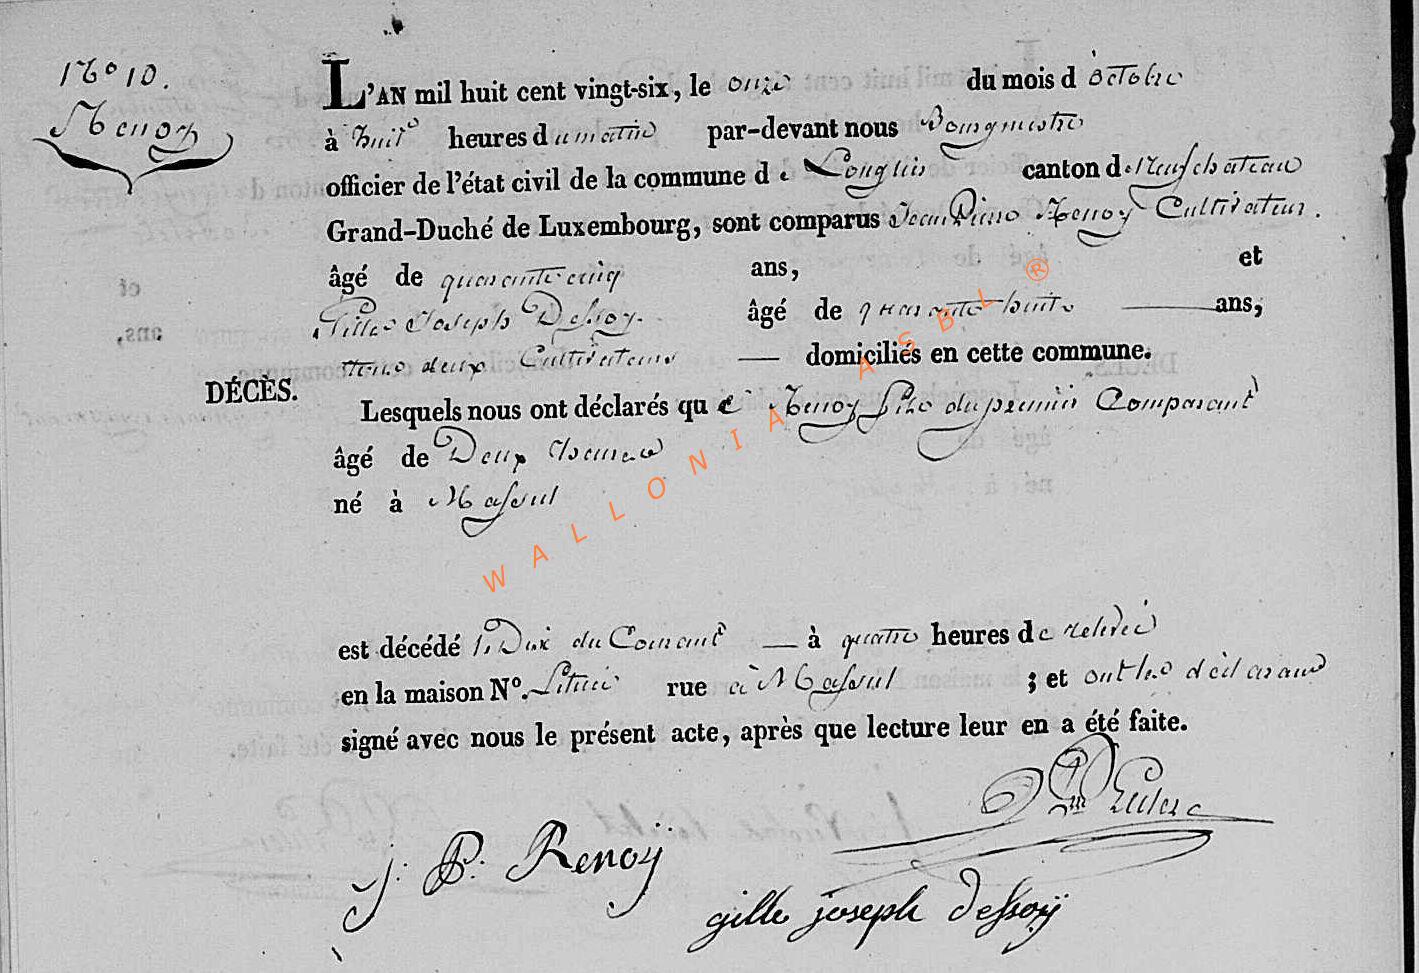 N° 10.
Renoy
L'AN mil huit cent vingt-six, le onze du mois d'octobre
à huit heures du matin par-devant nous Bourgmestre
officier de l'état civil de la commune de Longlier canton de Neufchateau
Grand-Duché de Luxembourg, sont comparus Jean Pierre Renoy Cultivateur.
âgé de quarante cinq ans, et
Gilles Joseph Dessoy. âgé de quarante huit ans,
tous deux Cultivateurs domiciliés en cette commune.
DÉCÈS.
Lesquels nous ont déclarés que Renoy fils du premier Comparant
âgé de Deux heures
né à Massul
est décédé le Dix du Courant à quatre heures de relevée
en la maison N°. Située rue à Massul ; et ont les déclarans
signé avec nous le présent acte, après que lecture leur en a été faite.
J. P. Renoÿ
gille joseph dessoÿ
WALLONIA ASBL ®